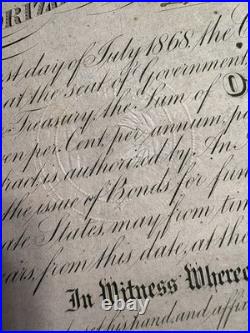 st day of July 1868, the
at the seat of Government
Treasury, the Sum of O
en per Cent. per annum, pa
ract is authorized by. An
the issue of Bonds for fun
ate States, may from ten
ars, from this date, at th
In Witness Where
set his hand, and affi